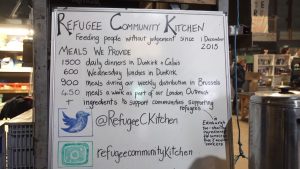 REFUGEE COMMUNITY KITCHEN
Feeding people without judgement since 1 December 2015
MEALS WE PROVIDE
1500 daily dinners in Dunkirk & Calais
600 Wednesday lunches in Dunkirk
900 meals during our weekly distribution in Brussels
450 meals a week as part of our London Outreach
+ ingredients to support communities supporting refugees
@RefugeeCKitchen
refugeecommunitykitchen
in Edinburgh